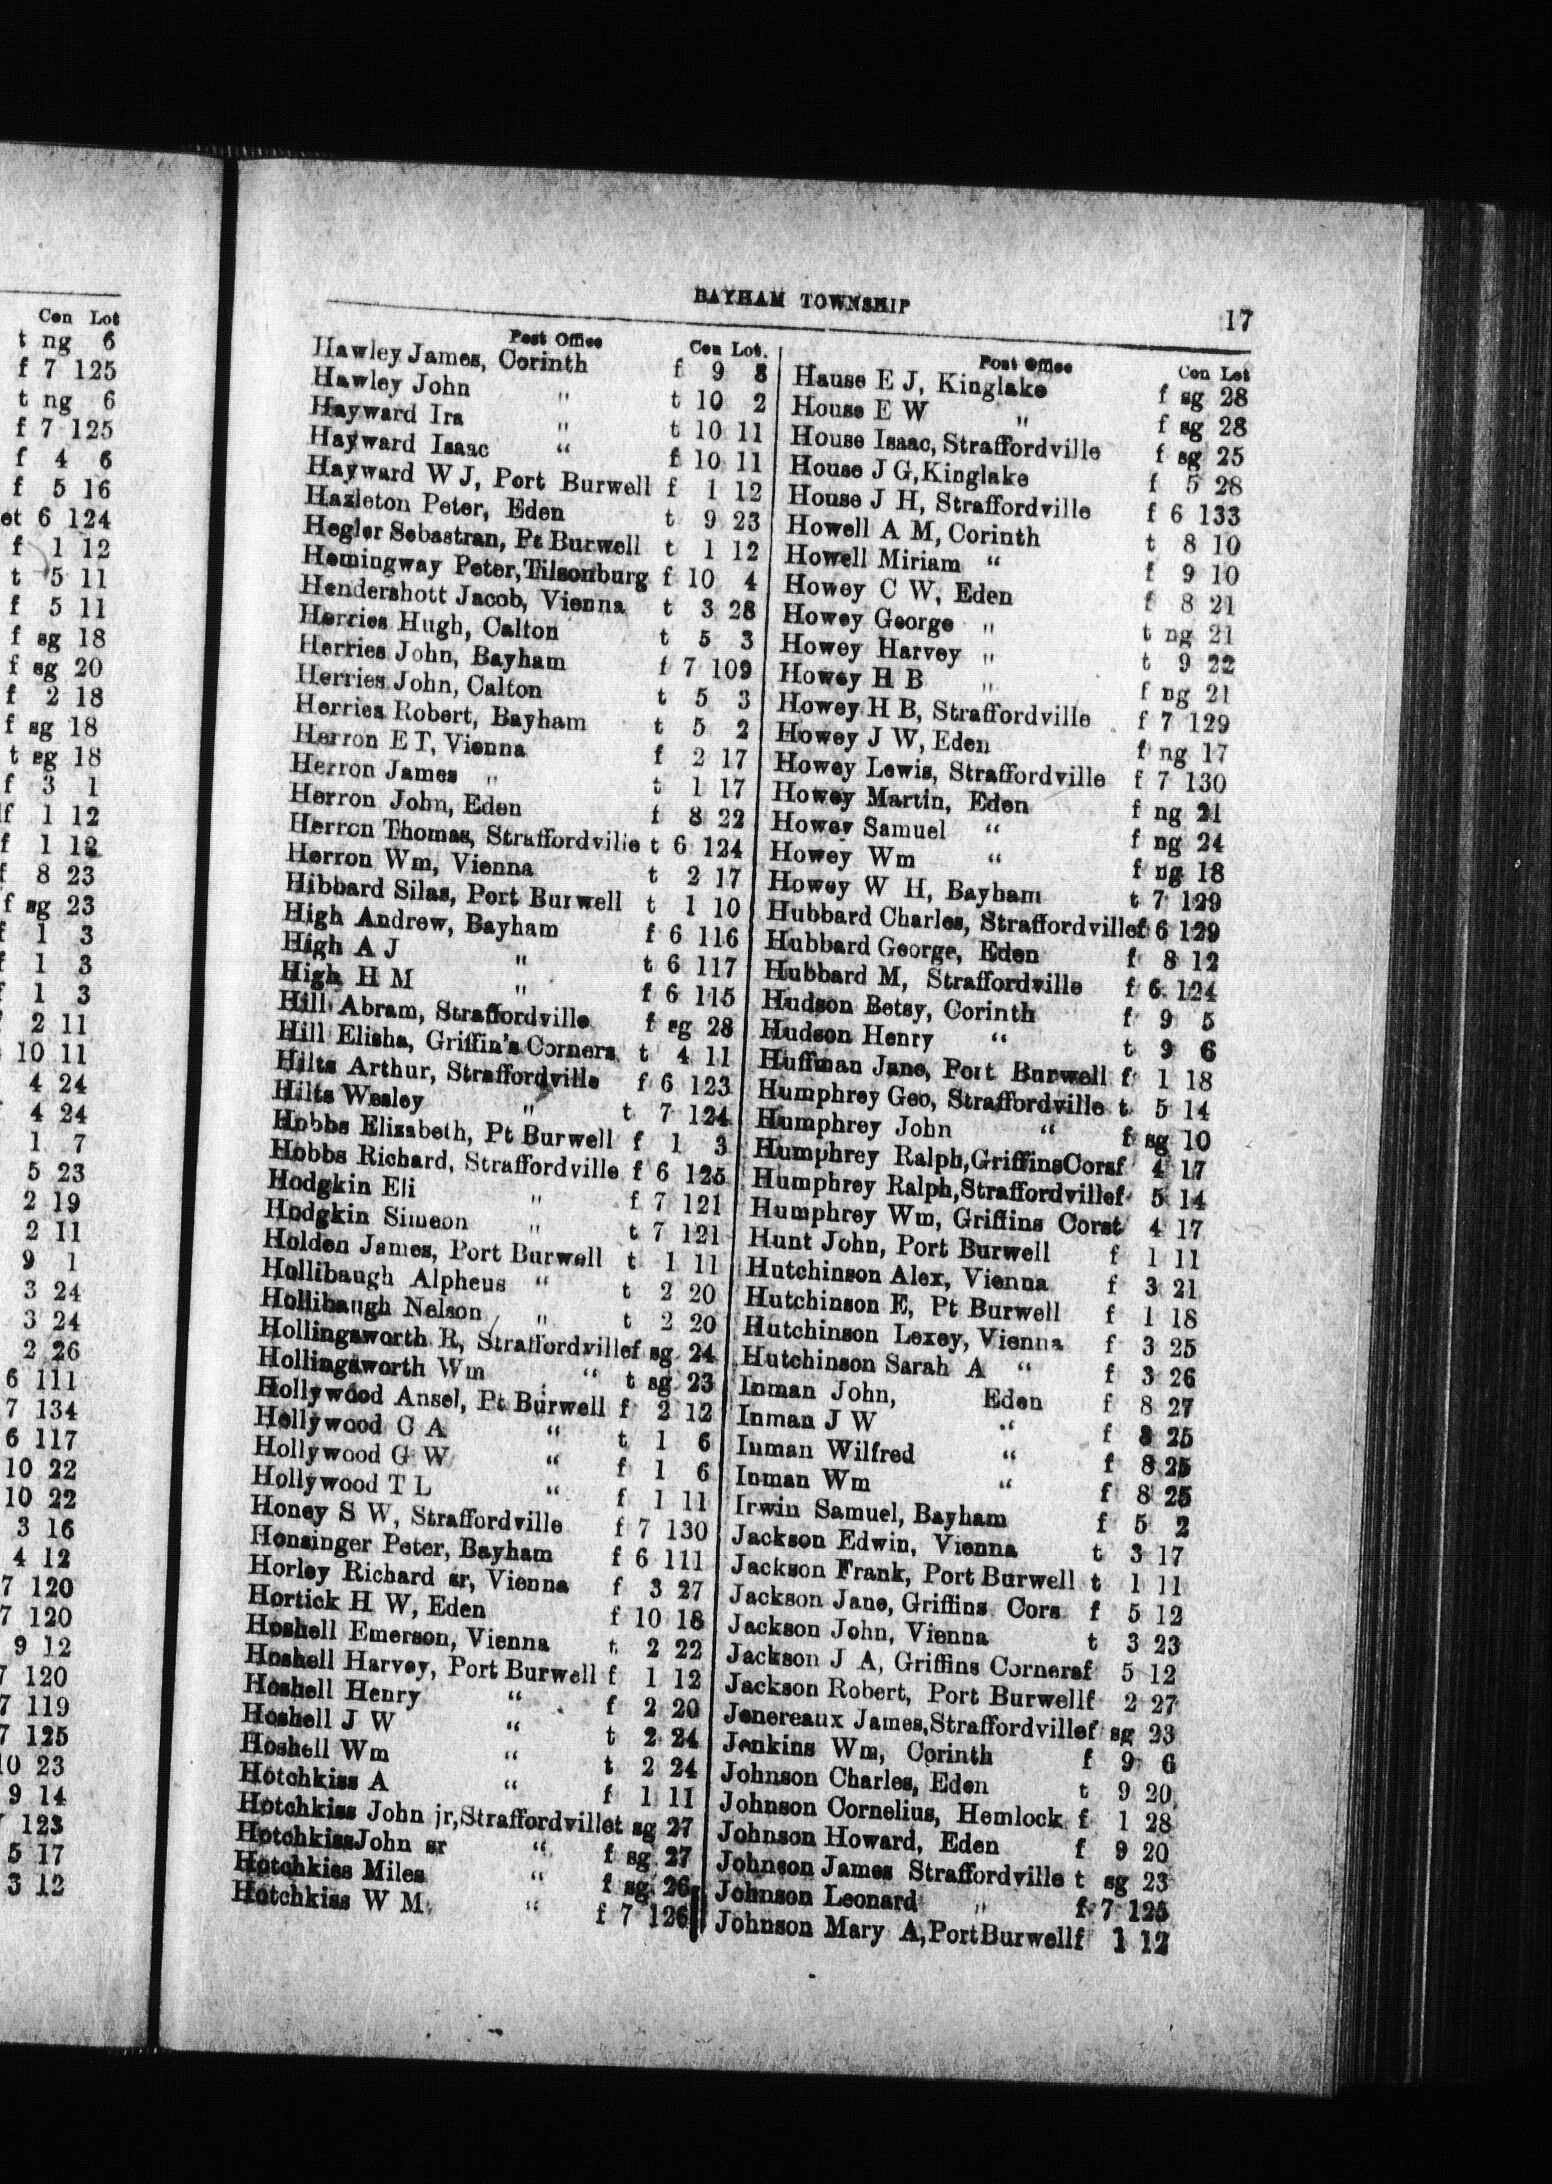 Con Lot
t ng 6
f 7 125
t ng 6
f 7 125
f 4 6
f 5 16
et 6 124
f 1 12
t 5 11
f 5 11
f sg 18
f sg 20
f 2 18
f sg 18
t sg 18
f 3 1
f 1 12
f 1 12
f 8 23
f sg 23
f 1 3
f 1 3
f 1 3
2 11
10 11
4 24
4 24
1 7
5 23
2 19
2 11
9 1
3 24
3 24
2 26
6 111
7 134
6 117
10 22
10 22
3 16
4 12
7 120
7 120
9 12
7 120
7 119
7 125
10 23
9 14
123
5 17
3 12
BAYHAM TOWNSHIP 17
Post Office Con Lot.
Hawley James, Corinth f 9 8
Hawley John " t 10 2
Hayward Ira " t 10 11
Hayward Isaac “ f 10 11
Hayward W J, Port Burwell f 1 12
Hazleton Peter, Eden t 9 23
Hegler Sebastran, Pt Burwell t 1 12
Hemingway Peter, Tilsonburg f 10 4
Hendershott Jacob, Vienna t 3 28
Herries Hugh, Calton t 5 3
Herries John, Bayham f 7 109
Herries John, Calton t 5 3
Herries Robert, Bayham t 5 2
Herron E T, Vienna f 2 17
Herron James " t 1 17
Herron John, Eden f 8 22
Herron Thomas, Straffordville t 6 124
Herron Wm, Vienna t 2 17
Hibbard Silas, Port Burwell t 1 10
High Andrew, Bayham f 6 116
High A J " t 6 117
High H M " f 6 115
Hill Abram, Straffordville f sg 28
Hill Elisha, Griffin's Corners t 4 11
Hilts Arthur, Straffordville f 6 123
Hilts Wesley " t 7 124
Hobbs Elizabeth, Pt Burwell f 1 3
Hobbs Richard, Straffordville f 6 125
Hodgkin Eli " f 7 121
Hodgkin Simeon " t 7 121
Holden James, Port Burwell t 1 11
Hollibaugh Alpheus “ t 2 20
Hollibaugh Nelson " t 2 20
Hollingsworth R, Straffordvillef sg 24
Hollingsworth Wm “ t sg 23
Hollywood Ansel, Pt Burwell f 2 12
Hollywood C A “ t 1 6
Hollywood G W “ f 1 6
Hollywood T L “ f 1 11
Honey S W, Straffordville f 7 130
Honsinger Peter, Bayham f 6 111
Horley Richard sr, Vienna f 3 27
Hortick H W, Eden f 10 18
Hoshell Emerson, Vienna t 2 22
Hoshell Harvey, Port Burwell f 1 12
Hoshell Henry “ f 2 20
Hoshell J W “ t 2 24
Hoshell Wm “ t 2 24
Hotchkiss A “ f 1 11
Hotchkiss John jr,Straffordvillet sg 27
HotchkissJohn sr “ f sg 27
Hotchkiss Miles “ f sg 26
Hotchkiss W M “ f 7 126
Post Office Con Lot
Hause E J, Kinglake f sg 28
House E W " f sg 28
House Isaac, Straffordville f sg 25
House J G, Kinglake f 5 28
House J H, Straffordville f 6 133
Howell A M, Corinth t 8 10
Howell Miriam “ f 9 10
Howey C W, Eden f 8 21
Howey George " t ng 21
Howey Harvey " t 9 22
Howey H B " f ng 21
Howey H B, Straffordville f 7 129
Howey J W, Eden f ng 17
Howey Lewis, Straffordville f 7 130
Howey Martin, Eden f ng 21
Howey Samuel “ f ng 24
Howey Wm “ f ng 18
Howey W H, Bayham t 7 129
Hubbard Charles, Straffordvillef 6 129
Hubbard George, Eden f 8 12
Hubbard M, Straffordville f 6 124
Hudson Betsy, Corinth f 9 5
Hudson Henry “ t 9 6
Huffman Jane, Port Burwell f 1 18
Humphrey Geo, Straffordville t 5 14
Humphrey John “ f sg 10
Humphrey Ralph,GriffinsCorsf 4 17
Humphrey Ralph,Straffordvillef 5 14
Humphrey Wm, Griffins Corst 4 17
Hunt John, Port Burwell f 1 11
Hutchinson Alex, Vienna f 3 21
Hutchinson E, Pt Burwell f 1 18
Hutchinson Lexey, Vienna f 3 25
Hutchinson Sarah A “ f 3 26
Inman John, Eden f 8 27
Inman J W “ f 8 25
Inman Wilfred “ f 8 25
Inman Wm “ f 8 25
Irwin Samuel, Bayham f 5 2
Jackson Edwin, Vienna t 3 17
Jackson Frank, Port Burwell t 1 11
Jackson Jane, Griffins Cors f 5 12
Jackson John, Vienna t 3 23
Jackson J A, Griffins Cornersf 5 12
Jackson Robert, Port Burwellf 2 27
Jenereaux James,Straffordvillef sg 23
Jenkins Wm, Corinth f 9 6
Johnson Charles, Eden t 9 20
Johnson Cornelius, Hemlock f 1 28
Johnson Howard, Eden f 9 20
Johnson James Straffordville t sg 23
Johnson Leonard " f 7 125
Johnson Mary A,PortBurwellf 1 12